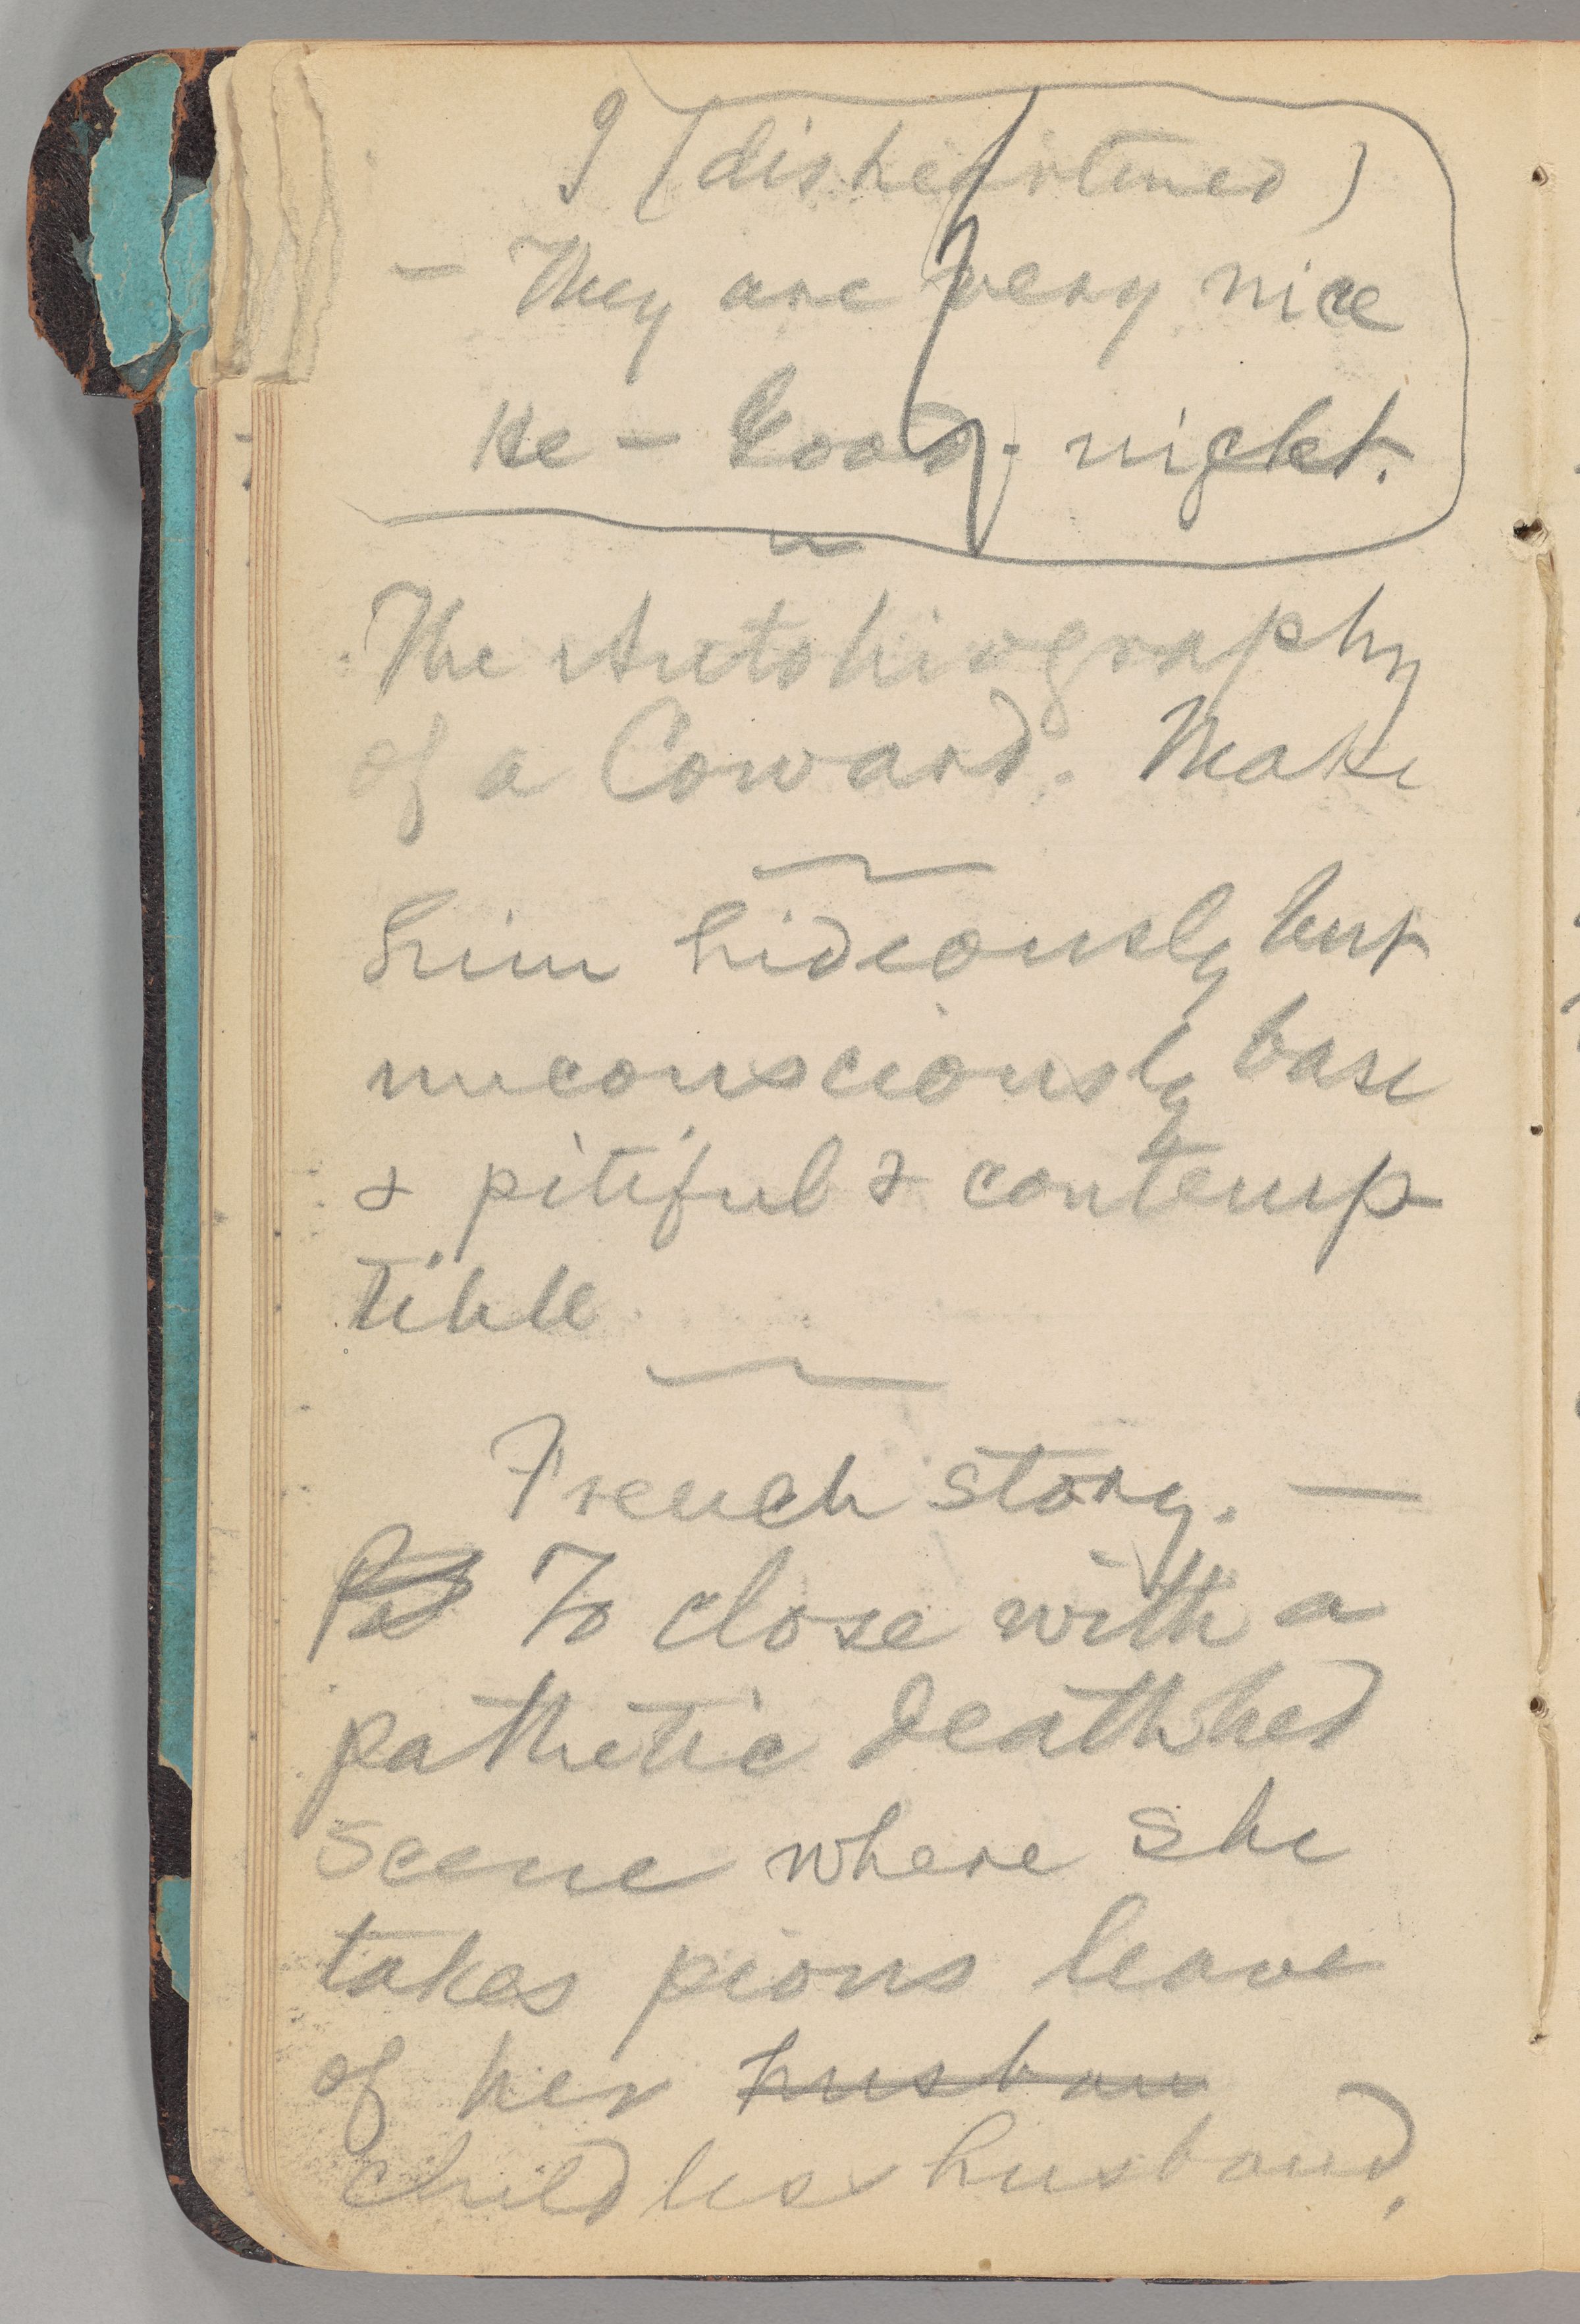 I (disheartened)
— They are very nice
He — Good-night.
The Autobiography
of a Coward. Make
him hideously but
unconsciously base
& pitiful & contemp
tible
French story. —
To close with a
pathetic deathbed
scene where she
takes pious leave
of her husban
childless husband,